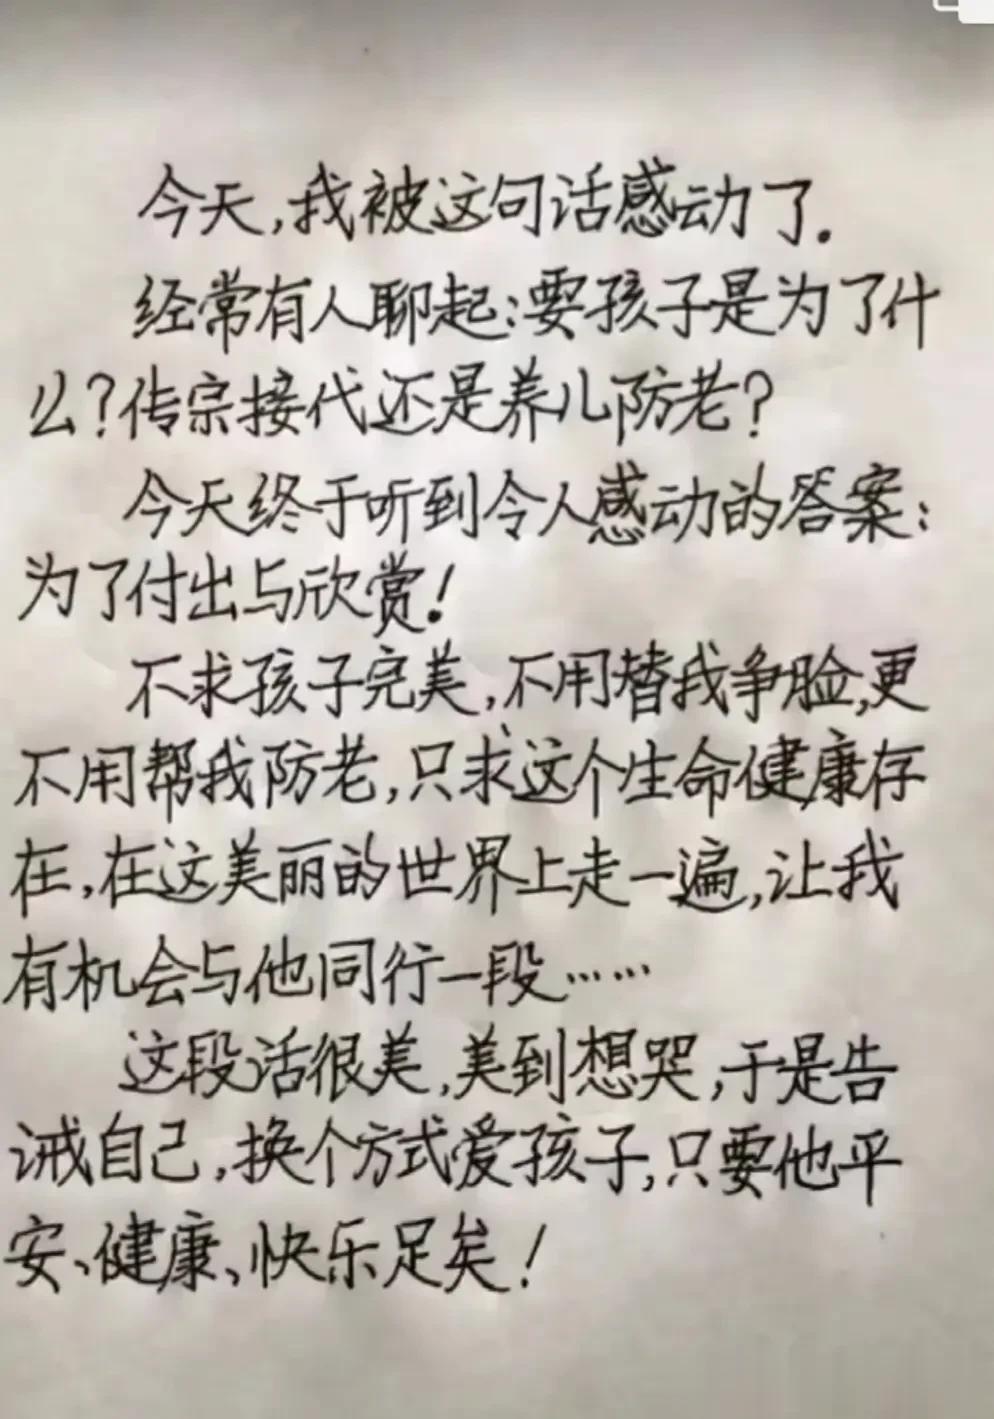 今天,我被这句话感动了.
经常有人聊起:要孩子是为了什
么?传宗接代还是养儿防老?
今天终于听到令人感动的答案:
为了付出与欣赏!
不求孩子完美,不用替我争脸,更
不用帮我防老,只求这个生命健康存
在,在这美丽的世界上走一遍,让我
有机会与他同行一段……
这段话很美,美到想哭,于是告
诫自己,换个方式爱孩子,只要他平
安、健康、快乐足矣!